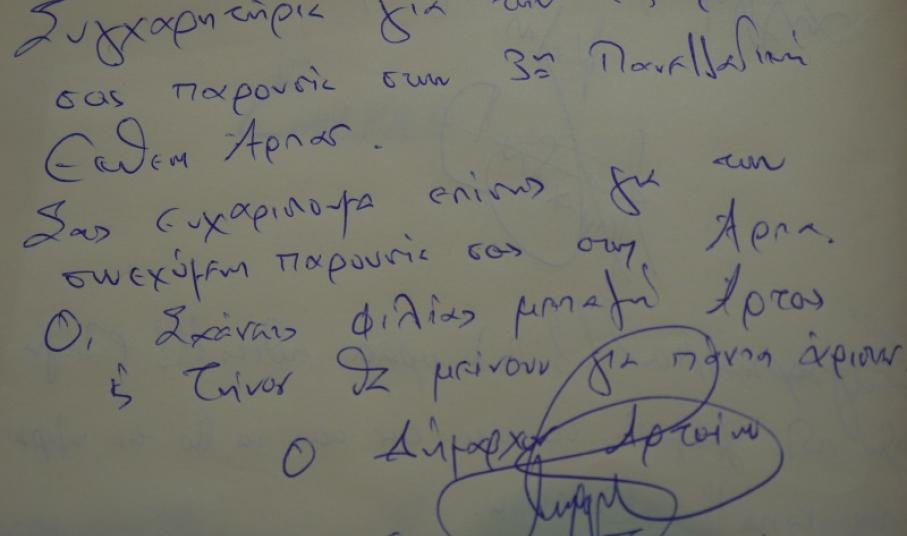 Συγχαρητήρια για την
σας παρουσία στην 3η Πανελλαδική
Έκθεση Άρτας.
Σας ευχαριστούμε επίσης για την
συνεχόμενη παρουσία σας στην Άρτα.
Οι Σχέσεις φιλίας μεταξύ Άρτας
& Τήνου θα μείνουν για πάντα άριστες
Ο Δήμαρχος Αρταίων